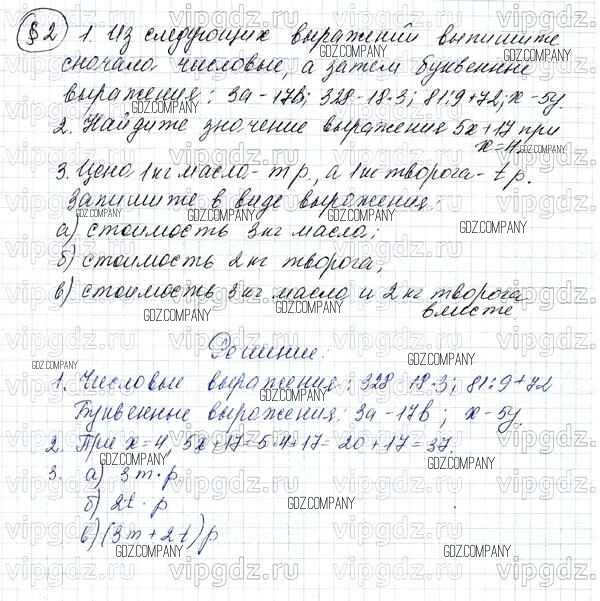 §2 1. Из следующих выражений выпишите
сначала числовые, а затем буквенные
выражения: 3a-17b; 328-18·3; 81:9+72; x-5y.
2. Найдите значение выражения 5x+17 при
x=4.
3. Цена 1 кг масла - m р., а 1 кг творога - t р.
Запишите в виде выражения:
а) стоимость 3 кг масла;
б) стоимость 2 кг творога;
в) стоимость 3 кг масла и 2 кг творога
вместе
Решение:
1. Числовые выражения: 328-18·3; 81:9+72
Буквенные выражения: 3a-17b; x-5y.
2. При x=4, 5x+17=5·4+17=20+17=37.
3. а) 3m·p.
б) 2t·p
в) (3m+2t) p
GDZ.COMPANY
vipgdz.ru